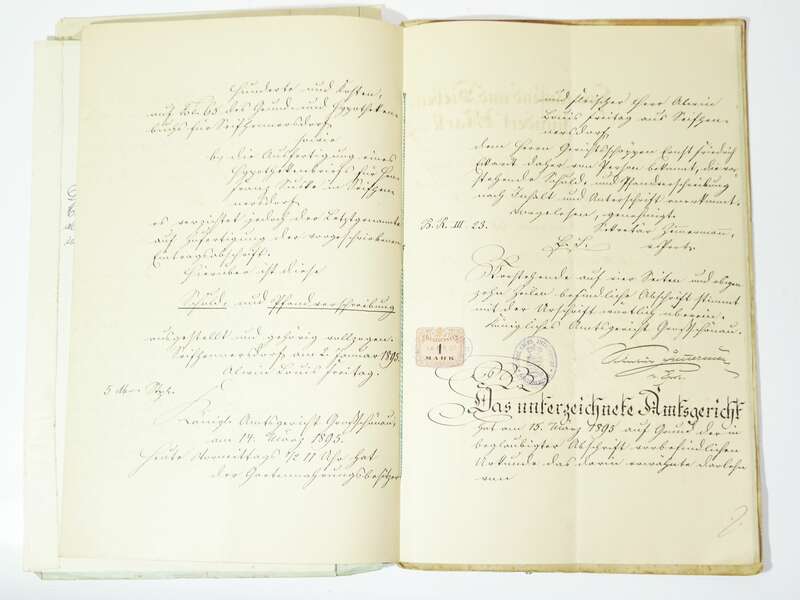 Hunderte und Kosten,
auf Fol. 63 des Grund- und Hypotheken-
buchs für Seifhennersdorf,
sowie
b, die Ausfertigung eines
Hypothekenbriefs für Herrn
Franz in Seifhen-
nersdorf,
es verzichtet jedoch der Letztgenannte
auf Zufertigung der vorgeschriebenen
Eintragsabschrift.
Hierüber ist diese
Schuld- und Pfandverschreibung
ausgestellt und gehörig vollzogen.
Seifhennersdorf am 2. Januar 1895.
Alwin Louis Freitag.
5 Mk
Königl. Amtsgericht Großschönau,
am 14. März 1895.
Heute Vormittags 1/2 11 Uhr hat
der Gartennahrungsbesitzer
und Fleischer Herr Alwin
Louis Freitag aus Seifhen-
nersdorf,
dem Herrn Gerichtsschöppen Ernst Friedrich
daher von Person bekannt, die vor-
stehende Schuld- und Pfandverschreibung
nach Inhalt und Unterschrift anerkannt.
Vorgelesen, genehmigt.
B. R. III. 23.
Sekretär Zimmermann,
Vorstehende auf vier Seiten und obigen
zehn Zeilen befindliche Abschrift stimmt
mit der Urschrift wörtlich überein.
Königliches Amtsgericht Großschönau.
1
MARK
Sekretär Zimmermann
Das unterzeichnete Amtsgericht
hat am 15. März 1895 auf Grund der in
beglaubigter Abschrift vorbefindlichen
Urkunde das darin erwähnte Darlehn
von